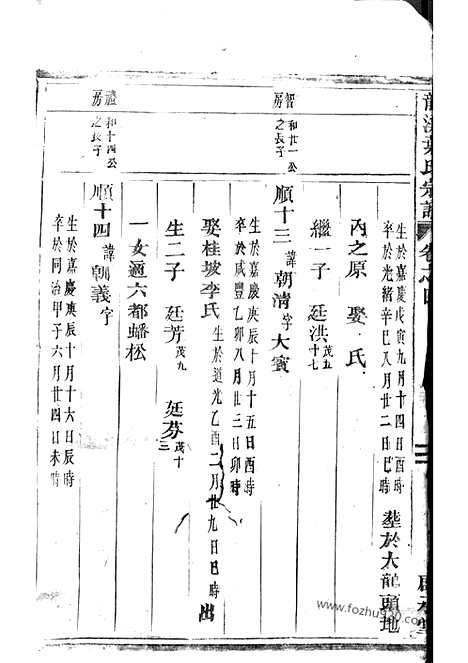 氏宗譜 卷之四
生於嘉慶戊寅九月十四日酉時
卒於光緒辛巳八月廿二日巳時
塟於大龍頭地
內之原 娶 氏
繼一子 廷洪 茂五十七
智房 和廿一公之長子
順十三 諱朝清字大賓
生於嘉慶庚辰十月十五日酉時
卒於咸豐乙卯八月廿三日卯時
娶桂坡李氏 生於道光乙酉二月廿九日巳時 出
生二子 廷芳 茂九 廷芬 茂十三
一女適六都蟠松
禮房 和十四公之長子
順十四 諱朝義字
生於嘉慶庚辰十月十六日辰時
卒於同治甲子六月廿四日未時
www.fozhu920.com